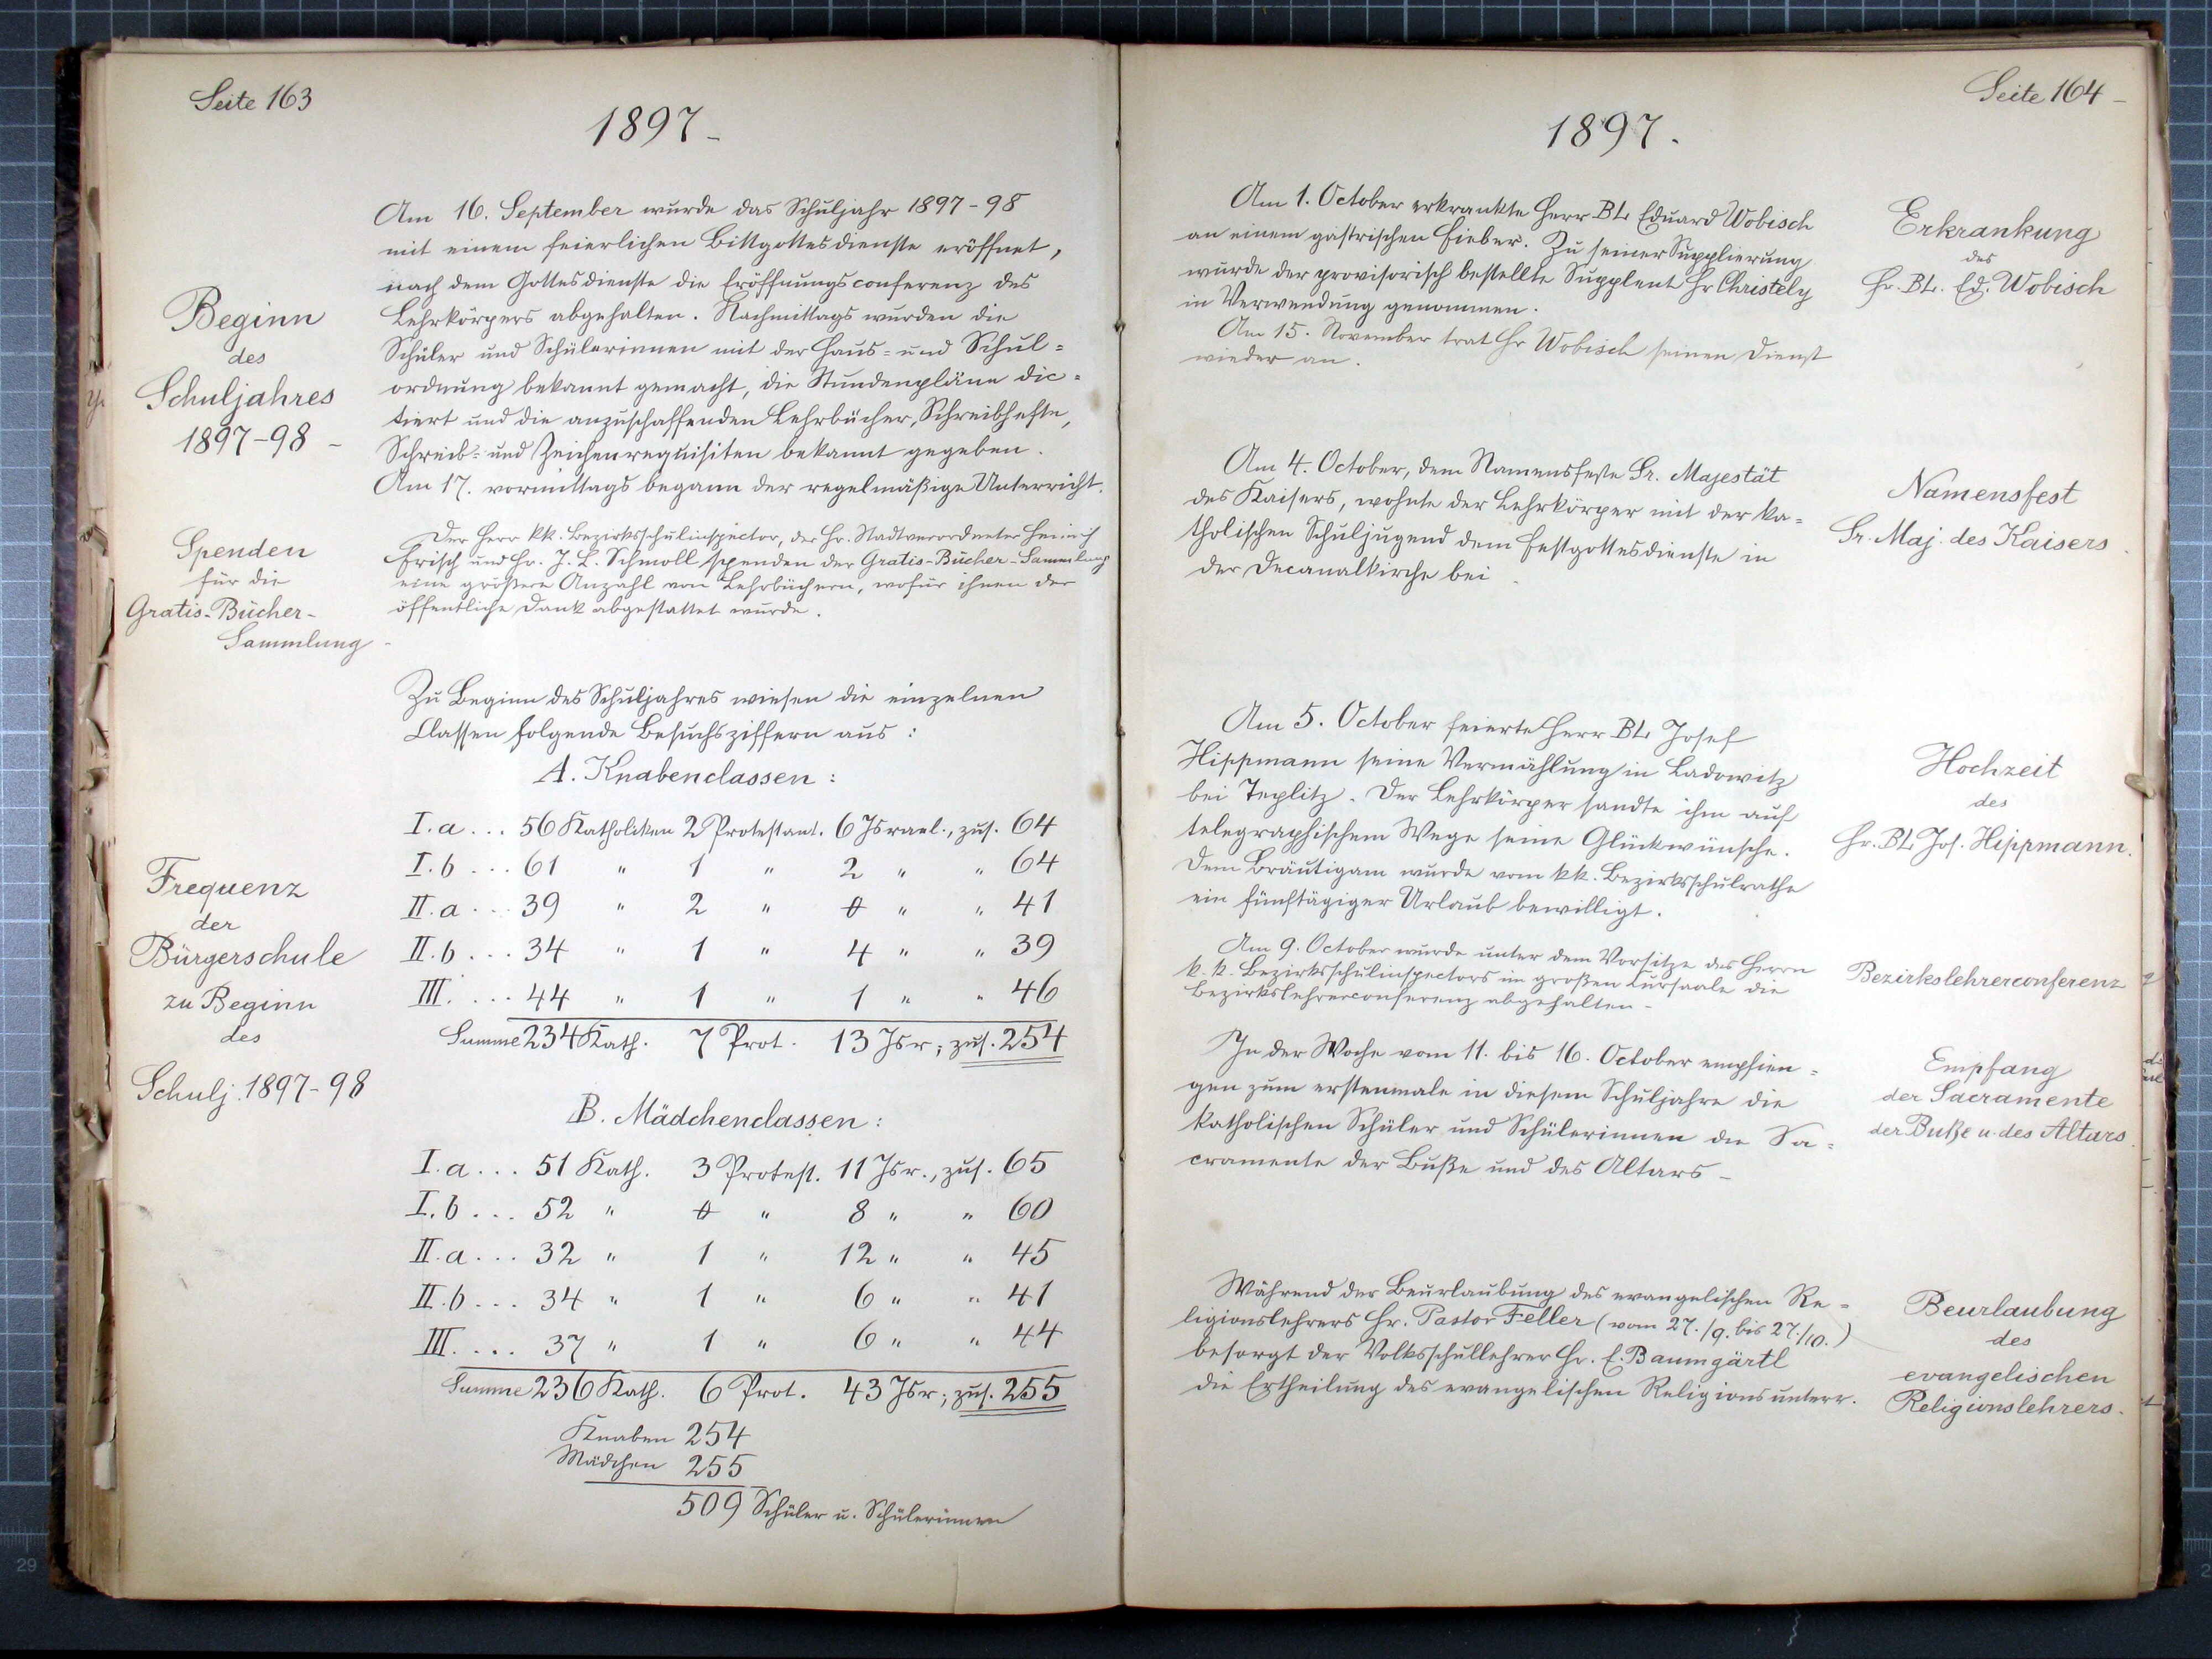 Seite 163
1897
Am 16. September wurde das Schuljahr 1897-98
mit einem feierlichen Bittgottesdienste eröffnet,
nach dem Gottesdienste die Eröffnungsconferenz des
Lehrkörpers abgehalten. Nachmittags wurden die
Schüler und Schülerinnen mit der Haus- und Schul-
ordnung bekannt gemacht, die Stundenpläne dic-
tiert und die anzuschaffenden Lehrbücher, Schreibhefte,
Schreib- und Zeichenrequisiten bekannt gegeben.
Am 17. vormittags begann der regelmäßige Unterricht.
Beginn
des
Schuljahres
1897-98
Der Herr kk. Bezirksschulinspector, der Hr. Stadtverordneter Heinrich
Frisch und Hr. J. L. Schmoll spenden der Gratis-Bücher-Sammlung
eine größere Anzahl von Lehrbüchern, wofür ihnen der
öffentliche Dank abgestattet wurde.
Spenden
für die
Gratis-Bücher-
Sammlung
Zu Beginn des Schuljahres wiesen die einzelnen
Classen folgende Besuchsziffern aus:
A. Knabenclassen:
I. a... 56 Katholiken 2 Protestant. 6 Israel., zus. 64
I. b... 61 " 1 " 2 " " 64
II. a... 39 " 2 " 0 " " 41
II. b... 34 " 1 " 4 " " 39
III.... 44 " 1 " 1 " " 46
Summe 234 Kath. 7 Prot. 13 Isr; zus. 254
Frequenz
der
Bürgerschule
zu Beginn
des
Schulj. 1897-98
B. Mädchenclassen:
I. a... 51 Kath. 3 Protest. 11 Isr., zus. 65
I. b... 52 " 0 " 8 " " 60
II. a... 32 " 1 " 12 " " 45
II. b... 34 " 1 " 6 " " 41
III.... 37 " 1 " 6 " " 44
Summe 236 Kath. 6 Prot. 43 Isr; zus. 255
Knaben 254
Mädchen 255
509 Schüler u. Schülerinnen
Seite 164
1897.
Am 1. October erkrankte Herr BL. Eduard Wobisch
an einem gastrischen Fieber. Zu seiner Supplierung
wurde der provisorisch bestellte Supplent Hr Christely
in Verwendung genommen.
Am 15. November trat Hr Wobisch seinen Dienst
wieder an.
Erkrankung
des
Hr. BL. Ed. Wobisch
Am 4. October, dem Namensfeste Sr. Majestät
des Kaisers, wohnte der Lehrkörper mit der ka-
tholischen Schuljugend dem Festgottesdienste in
der Decanalkirche bei.
Namensfest
Sr. Maj. des Kaisers.
Am 5. October feierte Herr BL. Josef
Hippmann seine Vermählung in Ladowitz
bei Teplitz. Der Lehrkörper sandte ihm auf
telegraphischem Wege seine Glückwünsche.
Dem Bräutigam wurde vom kk. Bezirksschulrathe
ein fünftägiger Urlaub bewilligt.
Hochzeit
des
Hr. BL. Jos. Hippmann.
Am 9. October wurde unter dem Vorsitze des Herrn
k. k. Bezirksschulinspectors im großen Cursaale die
Bezirkslehrerconferenz abgehalten.
Bezirkslehrerconferenz
In der Woche vom 11. bis 16. October empfien-
gen zum erstenmale in diesem Schuljahre die
katholischen Schüler und Schülerinnen die Sa-
cramente der Buße und des Altars.
Empfang
der Sacramente
der Buße u. des Altars.
Während der Beurlaubung des evangelischen Re-
ligionslehrers Hr. Pastor Feller (vom 27./9. bis 27./10.)
besorgt der Volksschullehrer Hr. E. Baumgärtl
die Ertheilung des evangelischen Religionsunterr.
Beurlaubung
des
evangelischen
Religionslehrers.
29